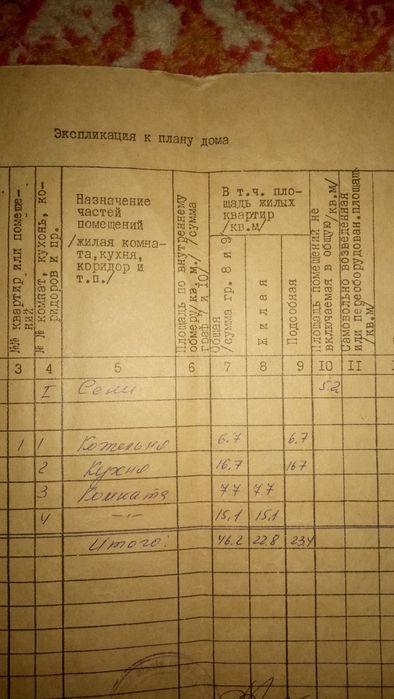 Экспликация к плану дома
№№ квартир или помеще-
ний
№№ комнат, кухонь, ко-
ридоров и пр.
Назначение
частей
помещений
/жилая комна-
та,кухня,
коридор и
т.п./
Площадь по внутреннему
обмеру/кв.м./сумма
граф 7 и 10/
В т.ч. пло-
щадь жилых
квартир
/кв.м/
Общая
/сумма гр. 8 и 9
Жилая
Подсобная
Площадь помещений не
включаемая в общую/кв.м/
Самовольно возведенная
или переоборудован.площадь
/кв.м/
3 4 5 6 7 8 9 10 11
I Сени 5.2
1 1 Котельна 6.7 6.7
2 Кухно 16.7 16.7
3 Комната 7.7 7.7
4 -"- 15,1 15,1
Итого: 46.2 22.8 23.4